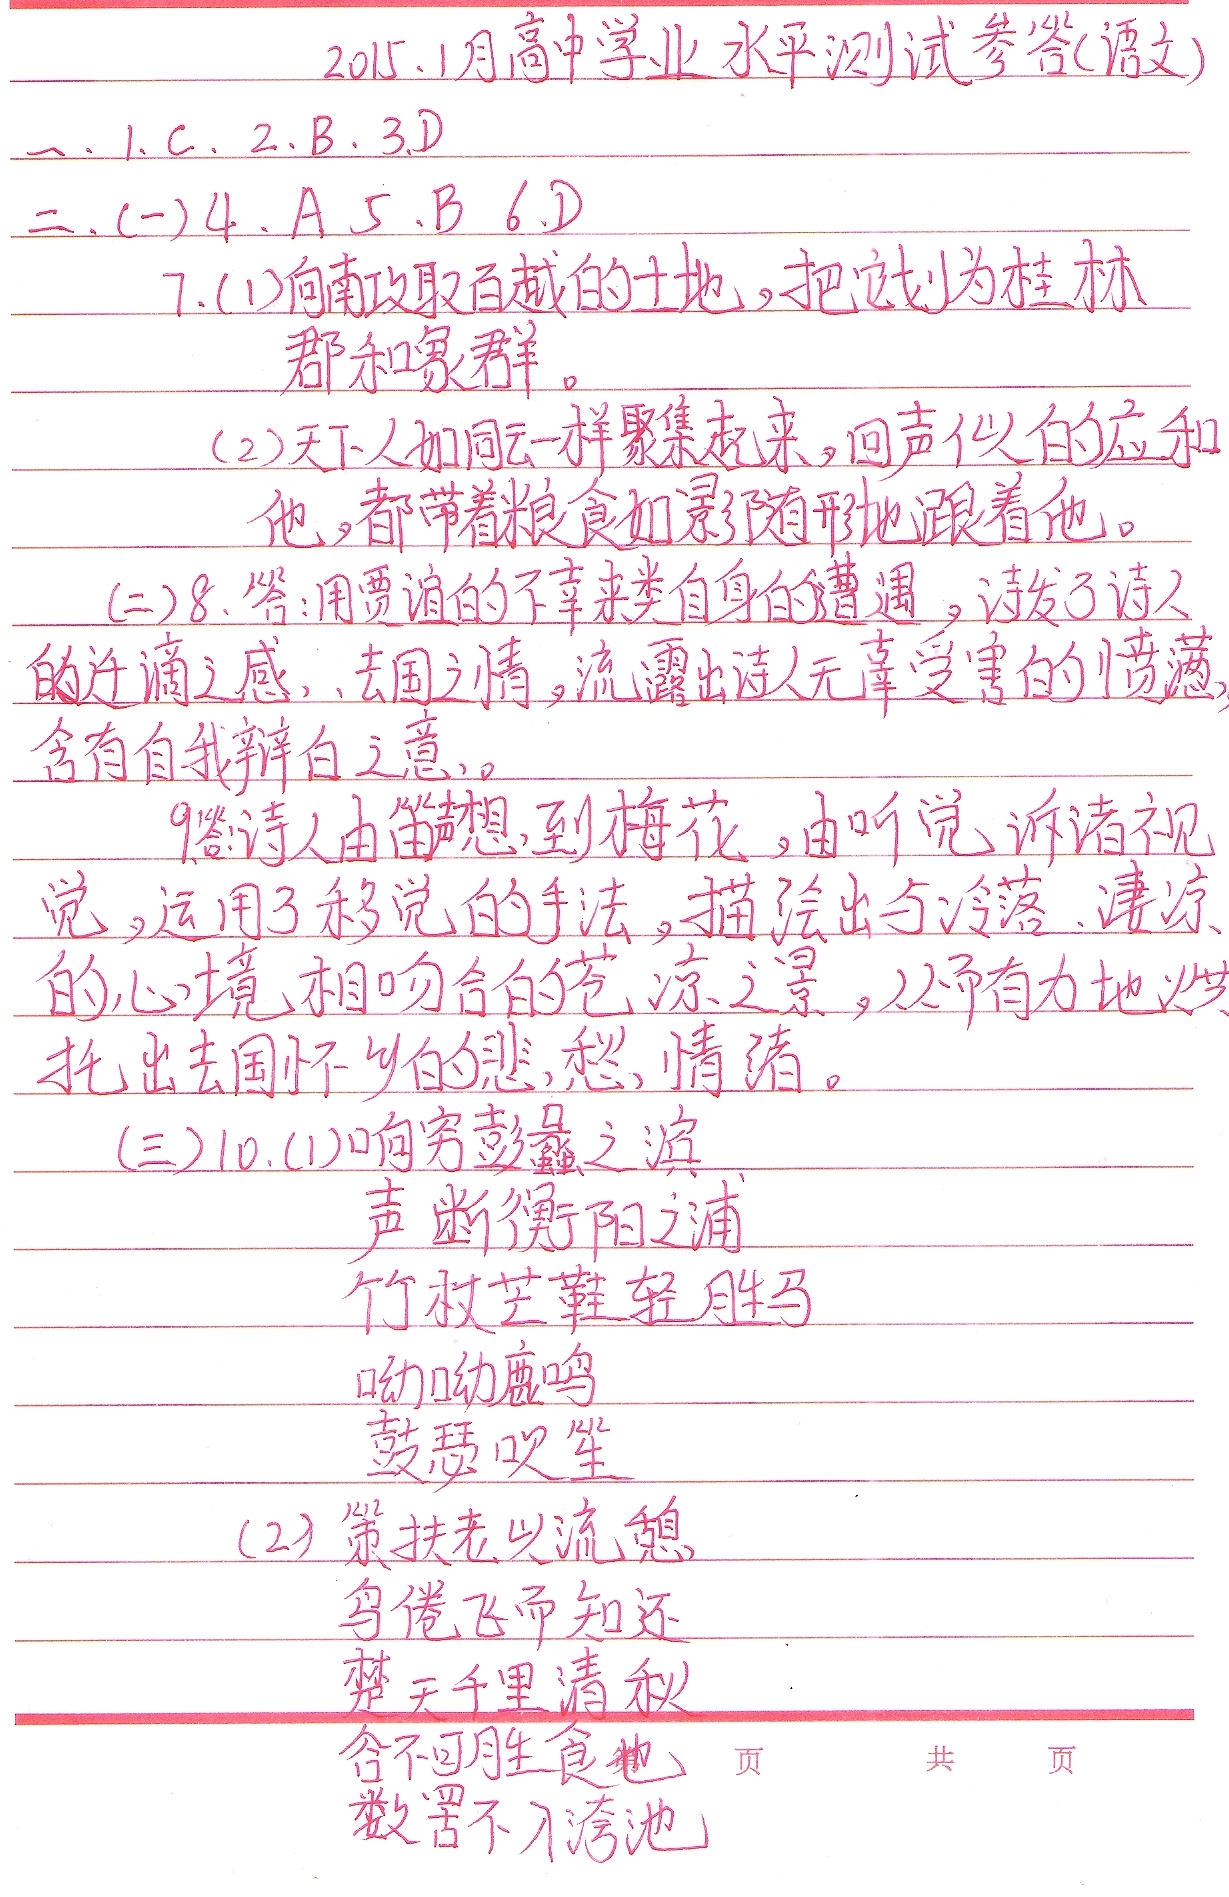 2015.1月高中学业水平测试参答(语文)
一.1.C.2.B.3.D
二.(一)4.A 5.B 6.D
7.(1)向南攻取百越的土地,把它划为桂林
郡和象群。
(2)天下人如同云一样聚集起来,回声似的应和
他,都带着粮食如影随形地跟着他。
(二)8.答:用贾谊的不幸来类自身的遭遇,诗发了诗人
的迁谪之感、去国之情,流露出诗人无辜受害的愤懑,
含有自我辩白之意。
9.答:诗人由笛声想到梅花,由听觉诉诸视
觉,运用了移觉的手法,描绘出与冷落、凄凉
的心境相吻合的苍凉之景,从而有力地烘
托出去国怀乡的悲愁情绪。
(三)10.(1)响穷彭蠡之滨
声断衡阳之浦
竹杖芒鞋轻胜马
呦呦鹿鸣
鼓瑟吹笙
(2)策扶老以流憩
鸟倦飞而知还
楚天千里清秋
谷不可胜食也
数罟不入洿池
页 共 页